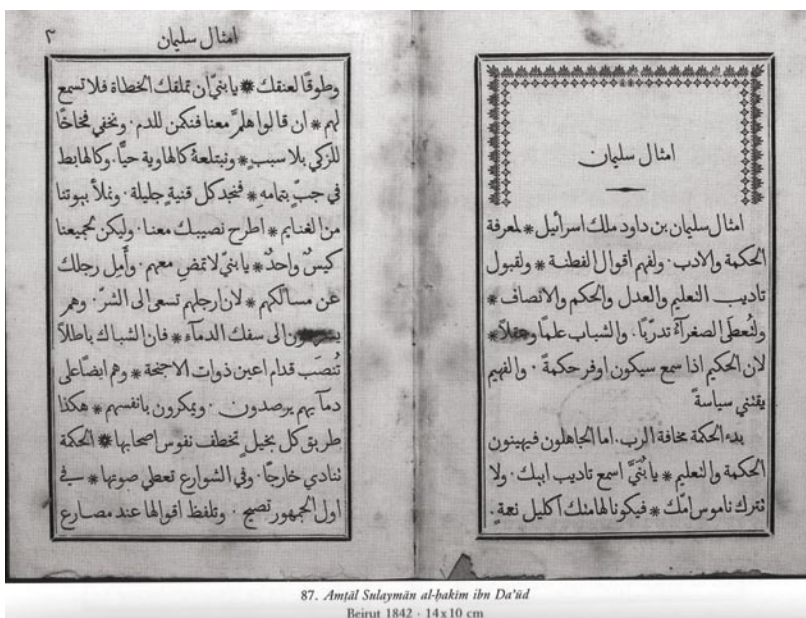 امثال سليمان
امثال سليمان بن داود ملك اسرآئيل * لمعرفة
الحكمة والادب . ولفهم اقوال الفطنة * ولقبول
تاديب التعليم والعدل والحكم والانصاف *
ولتُعطَى الصغرآءُ تدرّبًا . والشباب علمًا وعقلاً *
لان الحكيم اذا سمع سيكون اوفر حكمةً . والفهيم
يقتني سياسةً
بدء الحكمة مخافة الرب . اما الجاهلون فيهينون
الحكمة والتعليم * يا بُنَيَّ اسمع تاديب ابيك . ولا
تترك ناموس امّك * فيكونا لهامتك اكليل نعمةٍ .
امثال سليمان ٢
وطوقًا لعنقك * يا بنيّ ان تملقك الخطاة فلا تسمع
لهم * ان قالوا هلمَّ معنا فنكمن للدم . ونخفي فخاخًا
للزكي بلا سببٍ * ونبتلعهُ كالهاوية حيًّا . وكالهابط
في جبّ بتمامهِ * فنجد كل قنيةٍ جليلة . ونملأ بيوتنا
من الغنايم * اطرح نصيبك معنا . وليكن لجميعنا
كيسٌ واحدٌ * يا بنيّ لا تمضِ معهم . وأَمِل رجلك
عن مسالكهم * لان ارجلهم تسعى الى الشرّ . وهم
الى سفك الدمآء * فان الشباك باطلاً
تُنصَب قدام اعين ذوات الاجنحة * وهم ايضًا على
دمآيهم يرصدون . ويمكرون بانفسهم * هكذا
طريق كل بخيلٍ تخطف نفوس اصحابها * الحكمة
تنادي خارجًا . وفي الشوارع تعطي صوتها * في
اول الجمهور تصيح . وتلفظ اقوالها عند مصارع
87. Amṯāl Sulaymān al-ḥakīm ibn Da'ūd
Beirut 1842 · 14x10 cm